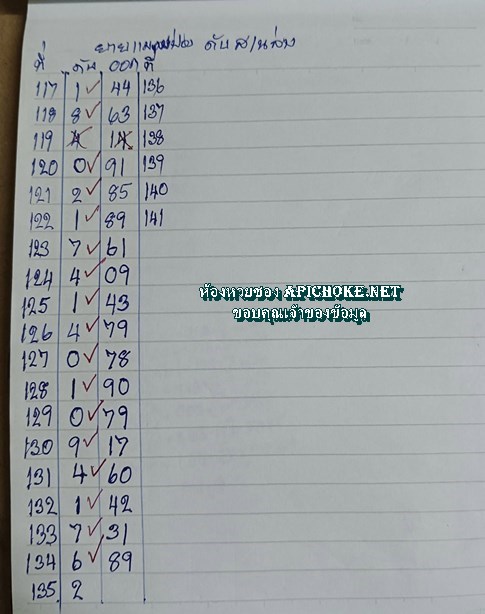 ดับ ล/น่าง
ที่ ดับ ออก ที่
117 1 ✓ 44 136
118 8 ✓ 63 137
119 4 14 138
120 0 ✓ 91 139
121 2 ✓ 85 140
122 1 ✓ 89 141
123 7 ✓ 61
124 4 ✓ 09
125 1 ✓ 43
126 4 ✓ 79
127 0 ✓ 78
128 1 ✓ 90
129 0 ✓ 79
130 9 ✓ 17
131 4 ✓ 60
132 1 ✓ 42
133 7 ✓ 31
134 6 ✓ 89
135 2
ห้องหวยซอง APICHOKE.NET
ขอบคุณเจ้าของข้อมูล